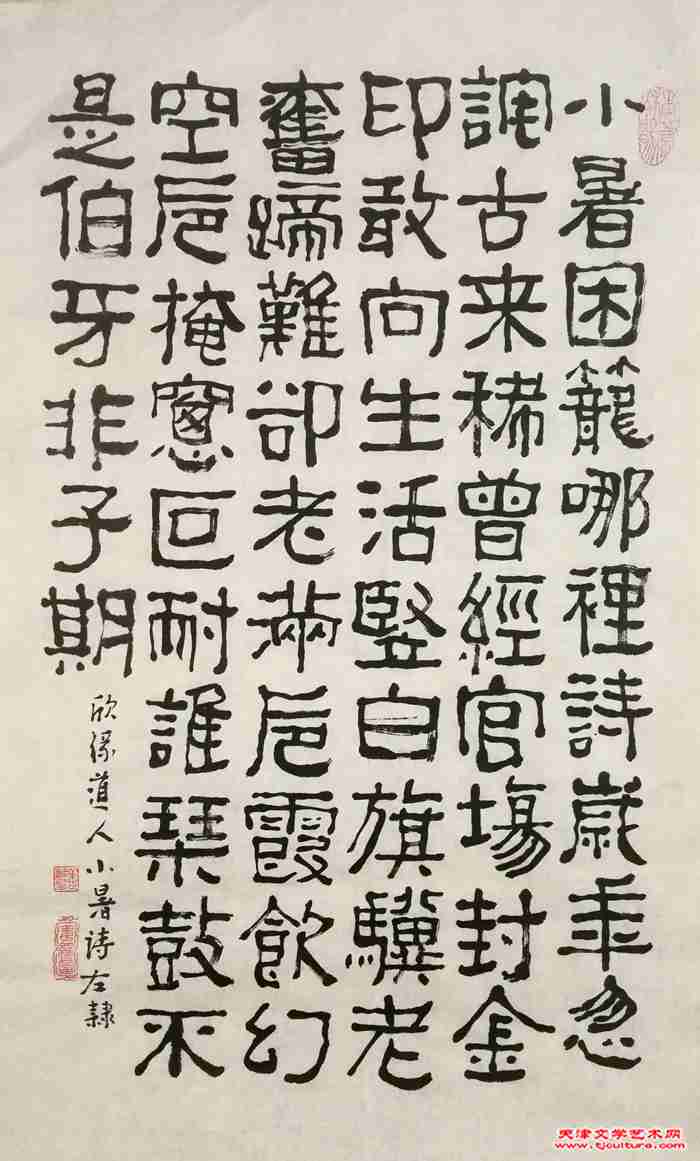 小暑困籠哪裡詩歲年忽
詫古来稀曾經官場封金
印敢向生活竪白旗驥老
奮蹄難卻老滿卮霞飲幻
空卮掩窻叵耐誰琴鼓不
是伯牙非子期
欣缘道人小暑诗左隸
天津文学艺术网
www.tjculture.com